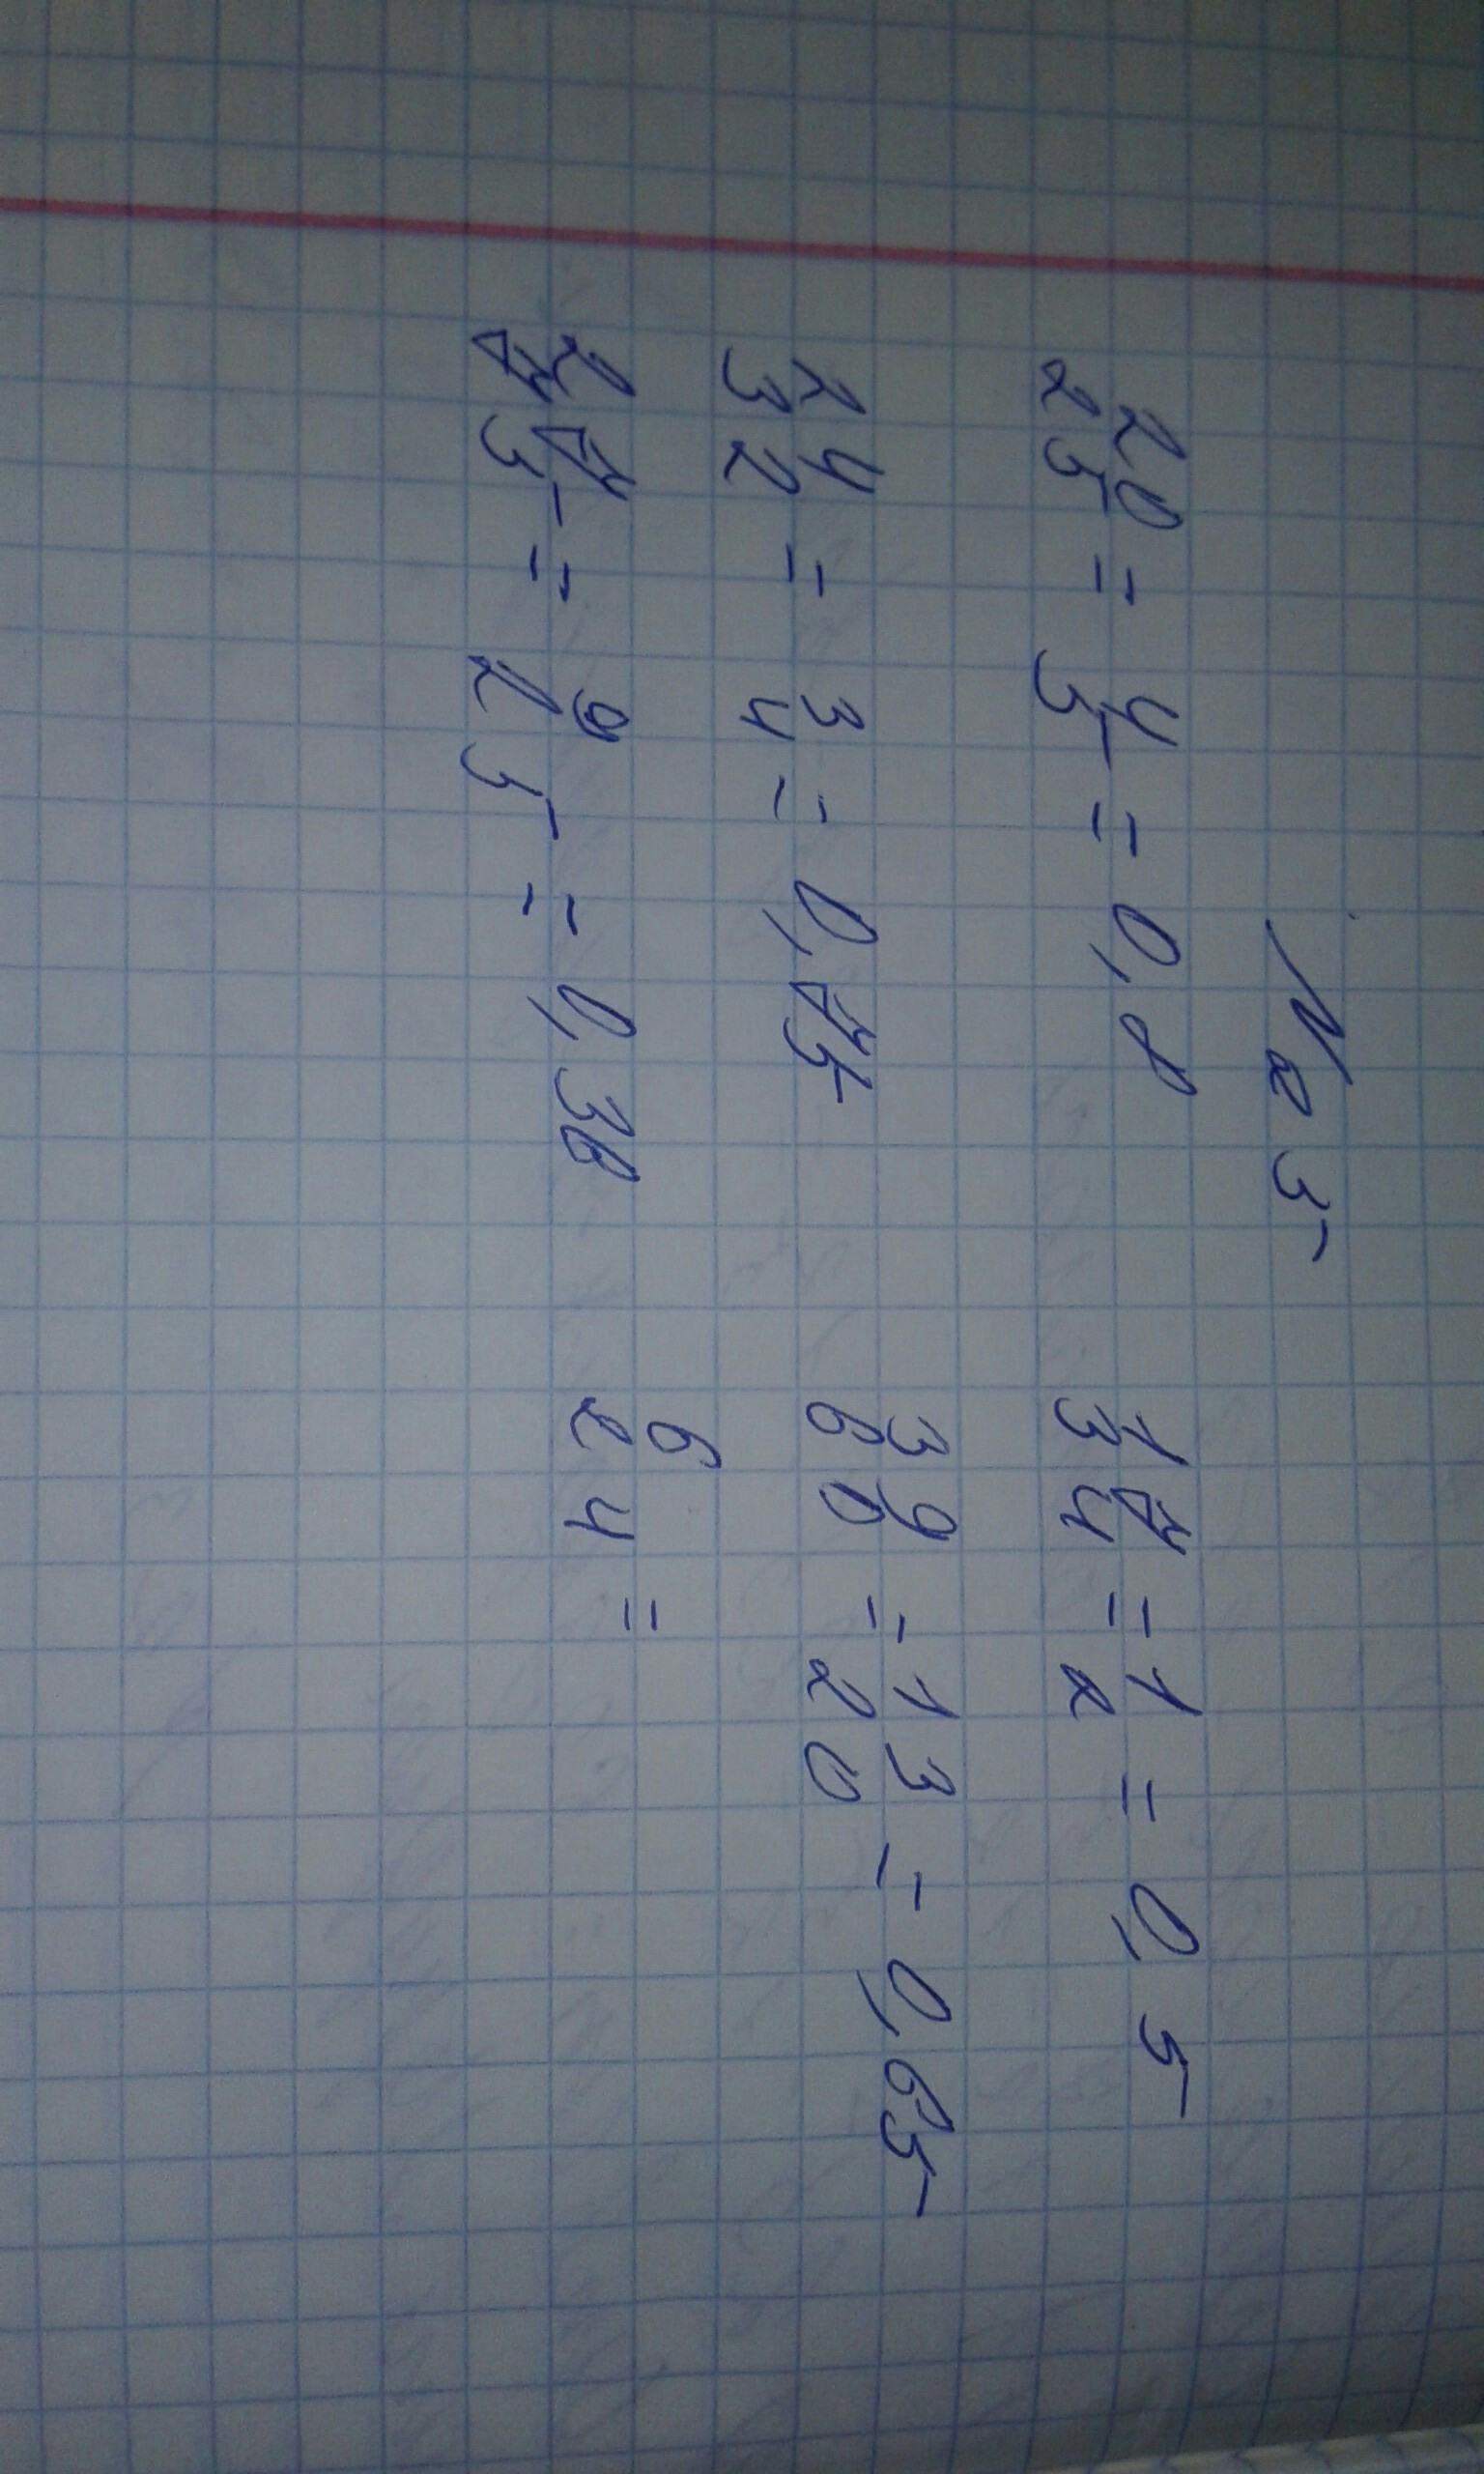 № 5
20/25 = 4/5 = 0,8    17/34 = 1/2 = 0,5
24/32 = 3/4 = 0,75    39/60 = 13/20 = 0,65
27/75 = 9/25 = 0,38    6/24 =